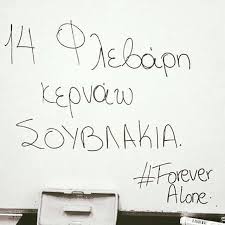 14 Φλεβάρη
κερνάω
ΣΟΥΒΛΑΚΙΑ.
#Forever
Alone.